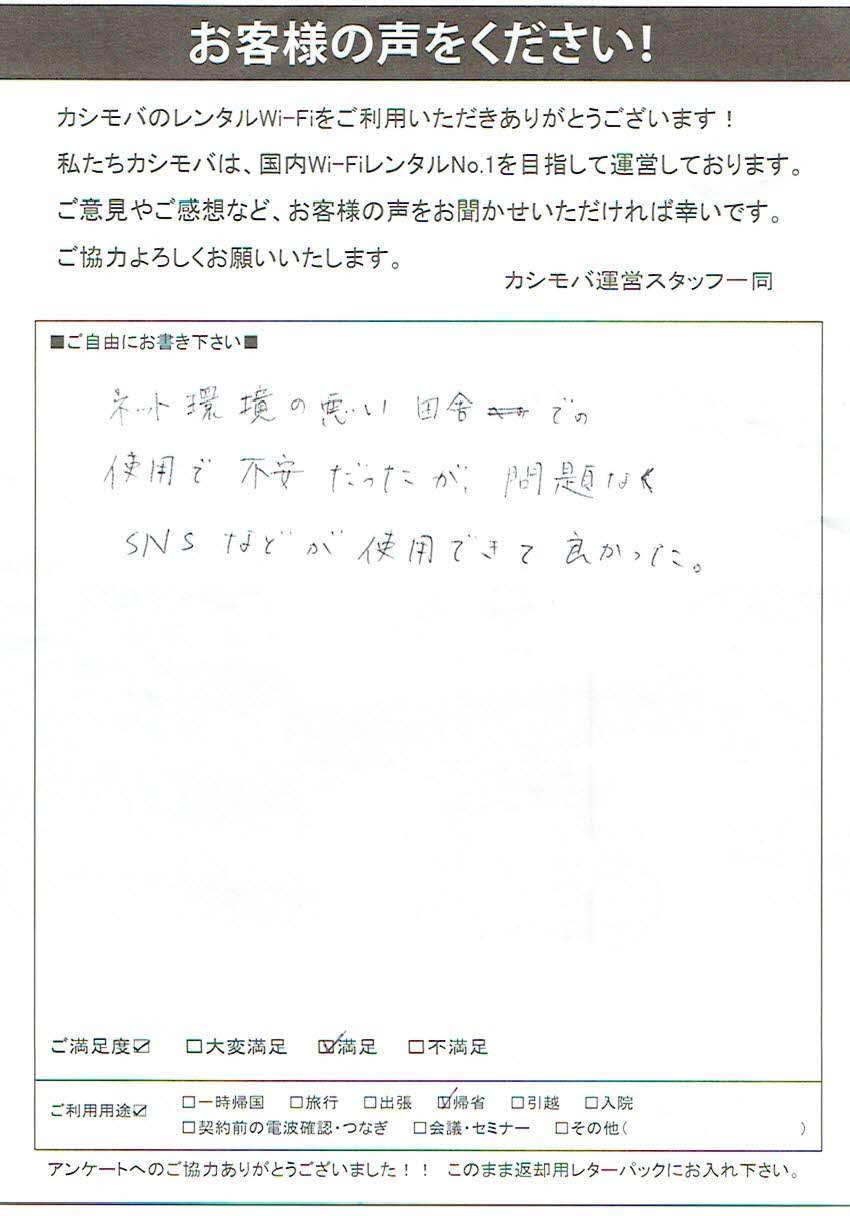 お客様の声をください!
カシモバのレンタルWi-Fiをご利用いただきありがとうございます！
私たちカシモバは、国内Wi-FiレンタルNo.1を目指して運営しております。
ご意見やご感想など、お客様の声をお聞かせいただければ幸いです。
ご協力よろしくお願いいたします。
カシモバ運営スタッフ一同
■ご自由にお書き下さい■
ネット環境の悪い田舎での
使用で不安だったが、問題なく
SNSなどが使用できて良かった。
ご満足度☑ □大変満足 ☑満足 □不満足
ご利用用途☑ □一時帰国 □旅行 □出張 ☑帰省 □引越 □入院
□契約前の電波確認・つなぎ □会議・セミナー □その他( )
アンケートへのご協力ありがとうございました！！ このまま返却用レターパックにお入れ下さい。